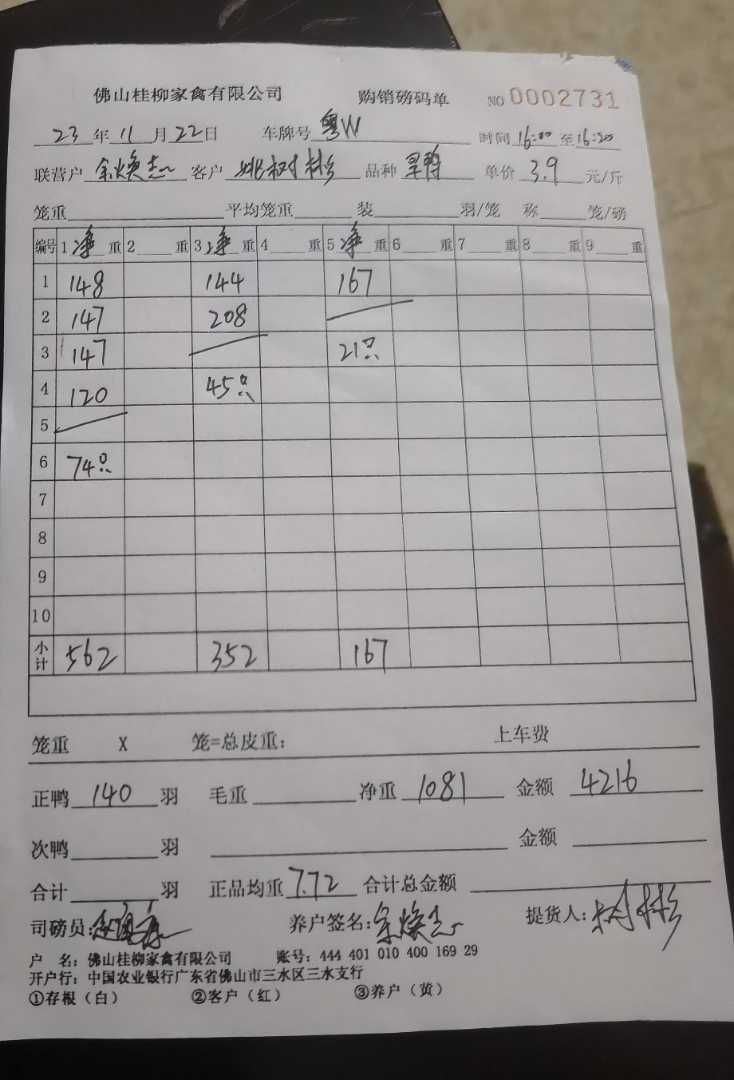 佛山桂柳家禽有限公司 购销磅码单 NO 0002731
23 年 11 月 22 日 车牌号 粤W 时间 16:00 至 16:20
联营户 余焕志 客户 姚树彬 品种 旱鸭 单价 3.9 元/斤
笼重 平均笼重 装 羽/笼 称 笼/磅
编号 1 净 重 2 重 3 净 重 4 重 5 净 重 6 重 7 重 8 重 9 重
1 148 144 167
2 147 208
3 147 21只
4 120 45只
5
6 74只
7
8
9
10
小计 562 352 167
笼重 X 笼=总皮重: 上车费
正鸭 140 羽 毛重 净重 1081 金额 4216
次鸭 羽 金额
合计 羽 正品均重 7.72 合计总金额
司磅员: 养户签名: 余焕志 提货人: 树彬
户 名: 佛山桂柳家禽有限公司 账号: 444 401 010 400 169 29
开户行: 中国农业银行广东省佛山市三水区三水支行
①存根（白） ②客户（红） ③养户（黄）